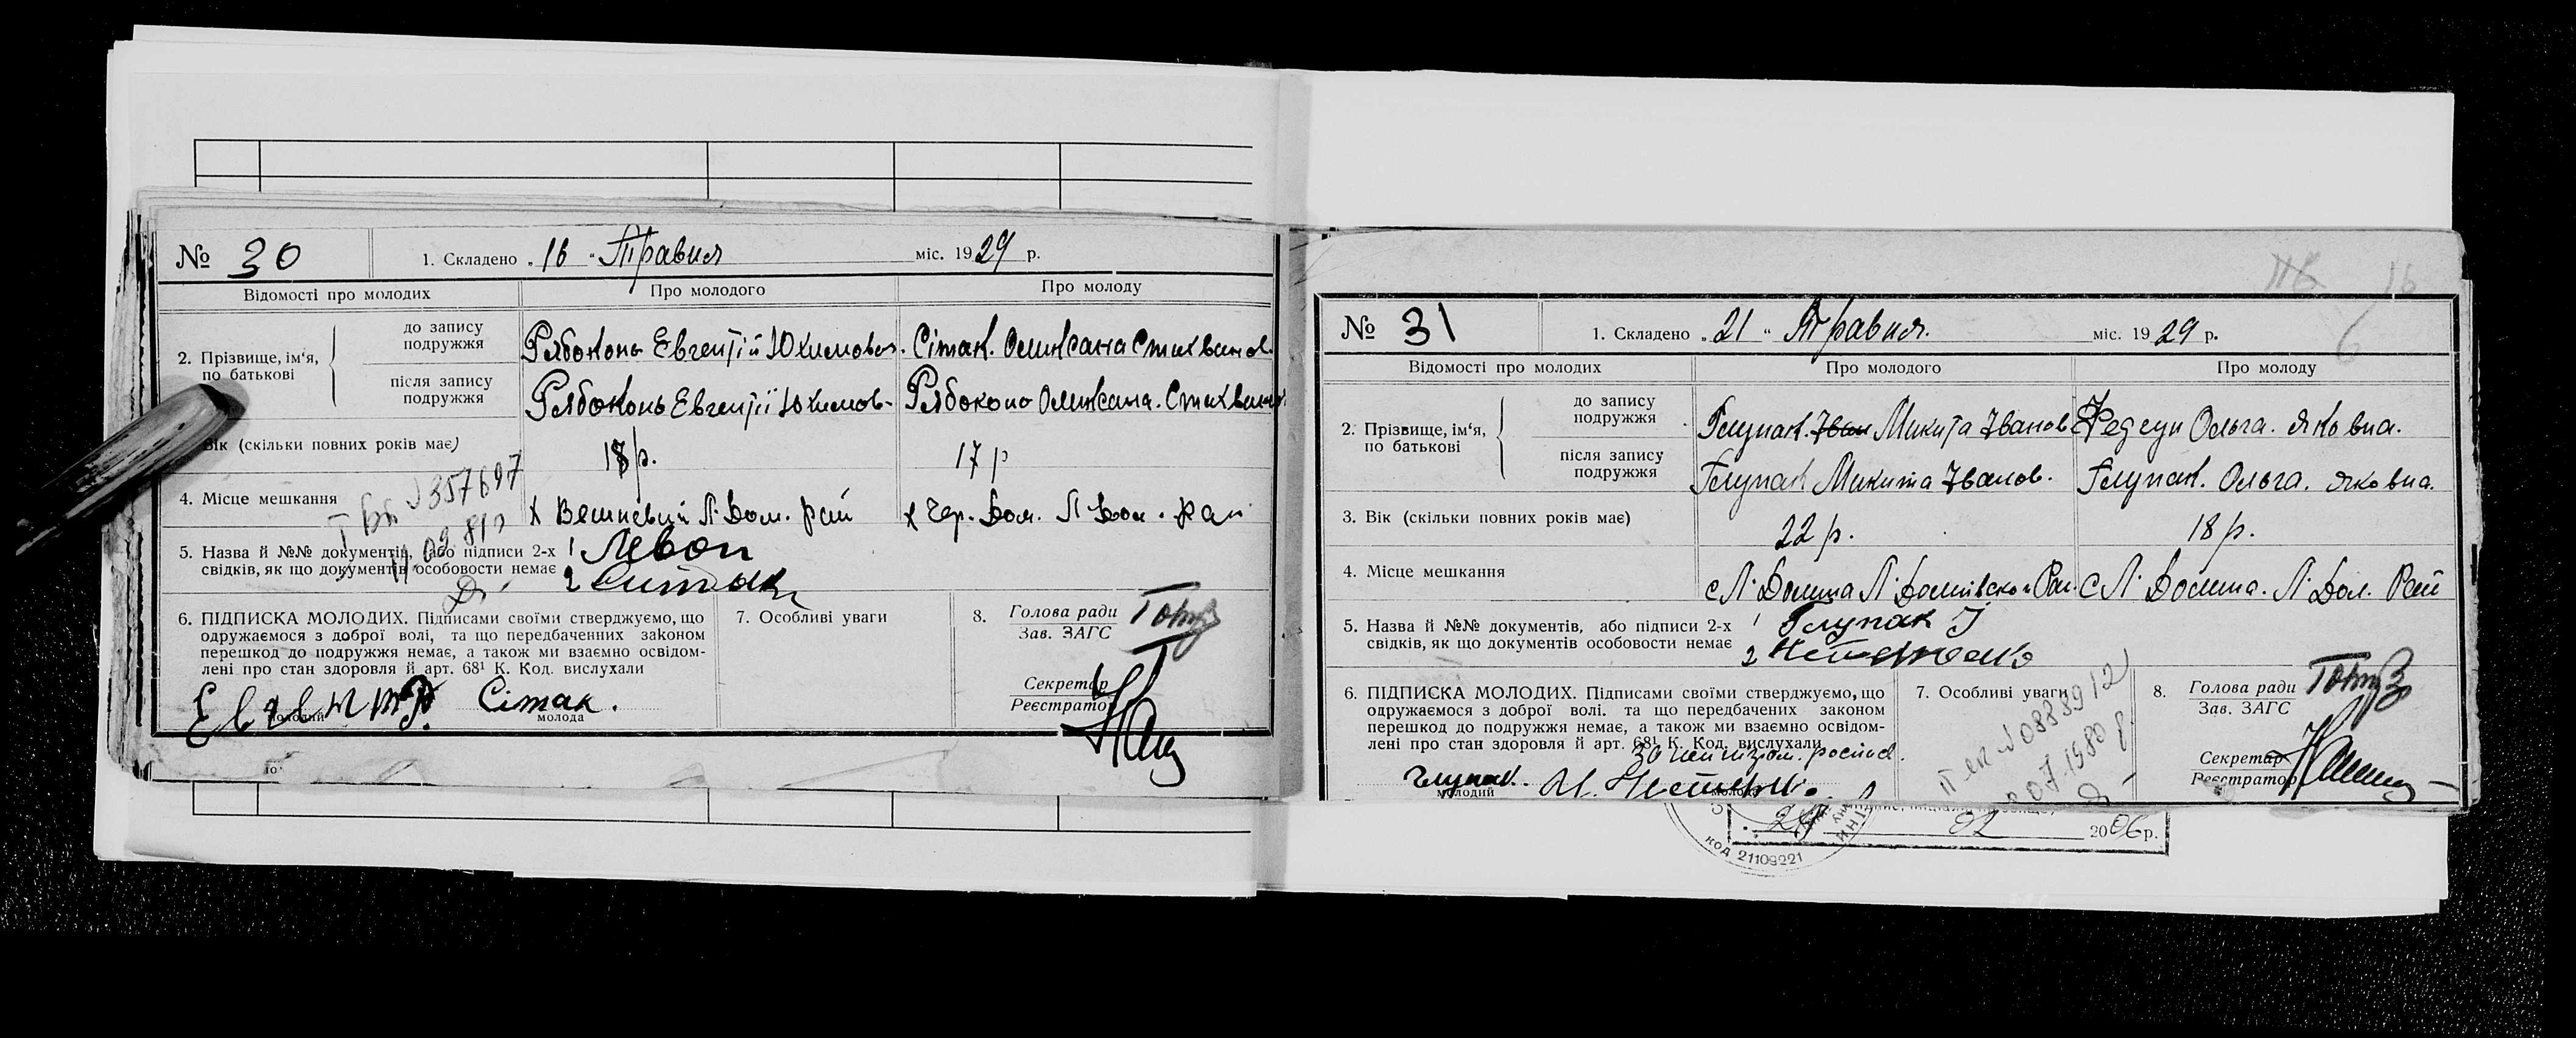 № 30
1. Складено „ 16 “ Травня міс. 1929 р.
Відомості про молодих Про молодого Про молоду
2. Прізвище, ім‘я, по батькові
до запису подружжя
Рябоконь Евгентій Юхимовач. Сітак. Оликсана Стихванов.
після запису подружжя
Рябоконь Евгентії Юхимов- Рябоконо Оликсана. Стихван
Вік (скільки повних років має) 18 р. 17 р
4. Місце мешкання х Л. Дол. рай х Чер. Дол. Л Дол. Рай
№ 357697
11.09.81р
5. Назва й №№ документів, або підписи 2-х 1 Левон
свідків, як що документів особовости немає 2 Ситак
6. ПІДПИСКА МОЛОДИХ. Підписами своїми стверджуємо, що
одружаємося з доброї волі, та що передбаченних законом
перешкод до подружжя немає, а також ми взаємно освідом-
лені про стан здоровля й арт. 68¹ К. Код. вислухали
Сітак.
молодий молода
7. Особливі уваги
8. Голова ради
Зав. ЗАГС
Секретар
Реєстратор
№ 31
1. Складено „ 21 “ Травня. міс. 1929 р.
16
Відомості про молодих Про молодого Про молоду
2. Прізвище, ім‘я, по батькові
до запису подружжя
Глупак. Іван Микита Іванов Федсун Ольга. Яковна.
після запису подружжя
Глупак Микита Іванов. Глупак. Ольга. Яковна.
3. Вік (скільки повних років має) 22 р. 18 р.
4. Місце мешкання с Л. Долина Л. Долинвской Рай. С Л. Долина. Л. Дол. Рай
5. Назва й №№ документів, або підписи 2-х 1 Глупак І
свідків, як що документів особовости немає 2
6. ПІДПИСКА МОЛОДИХ. Підписами своїми стверджуємо, що
одружаємося з доброї волі. та що передбачених законом
перешкод до подружжя немає, а також ми взаємно освідом-
лені про стан здоровля й арт. 68¹ К. Код. вислухали
Глупак.
молодий молода
7. Особливі уваги
№ 088912
07.1980 р.
8. Голова ради
Зав. ЗАГС
Секретар
Реєстратор
02 2006 р.
код 21109221